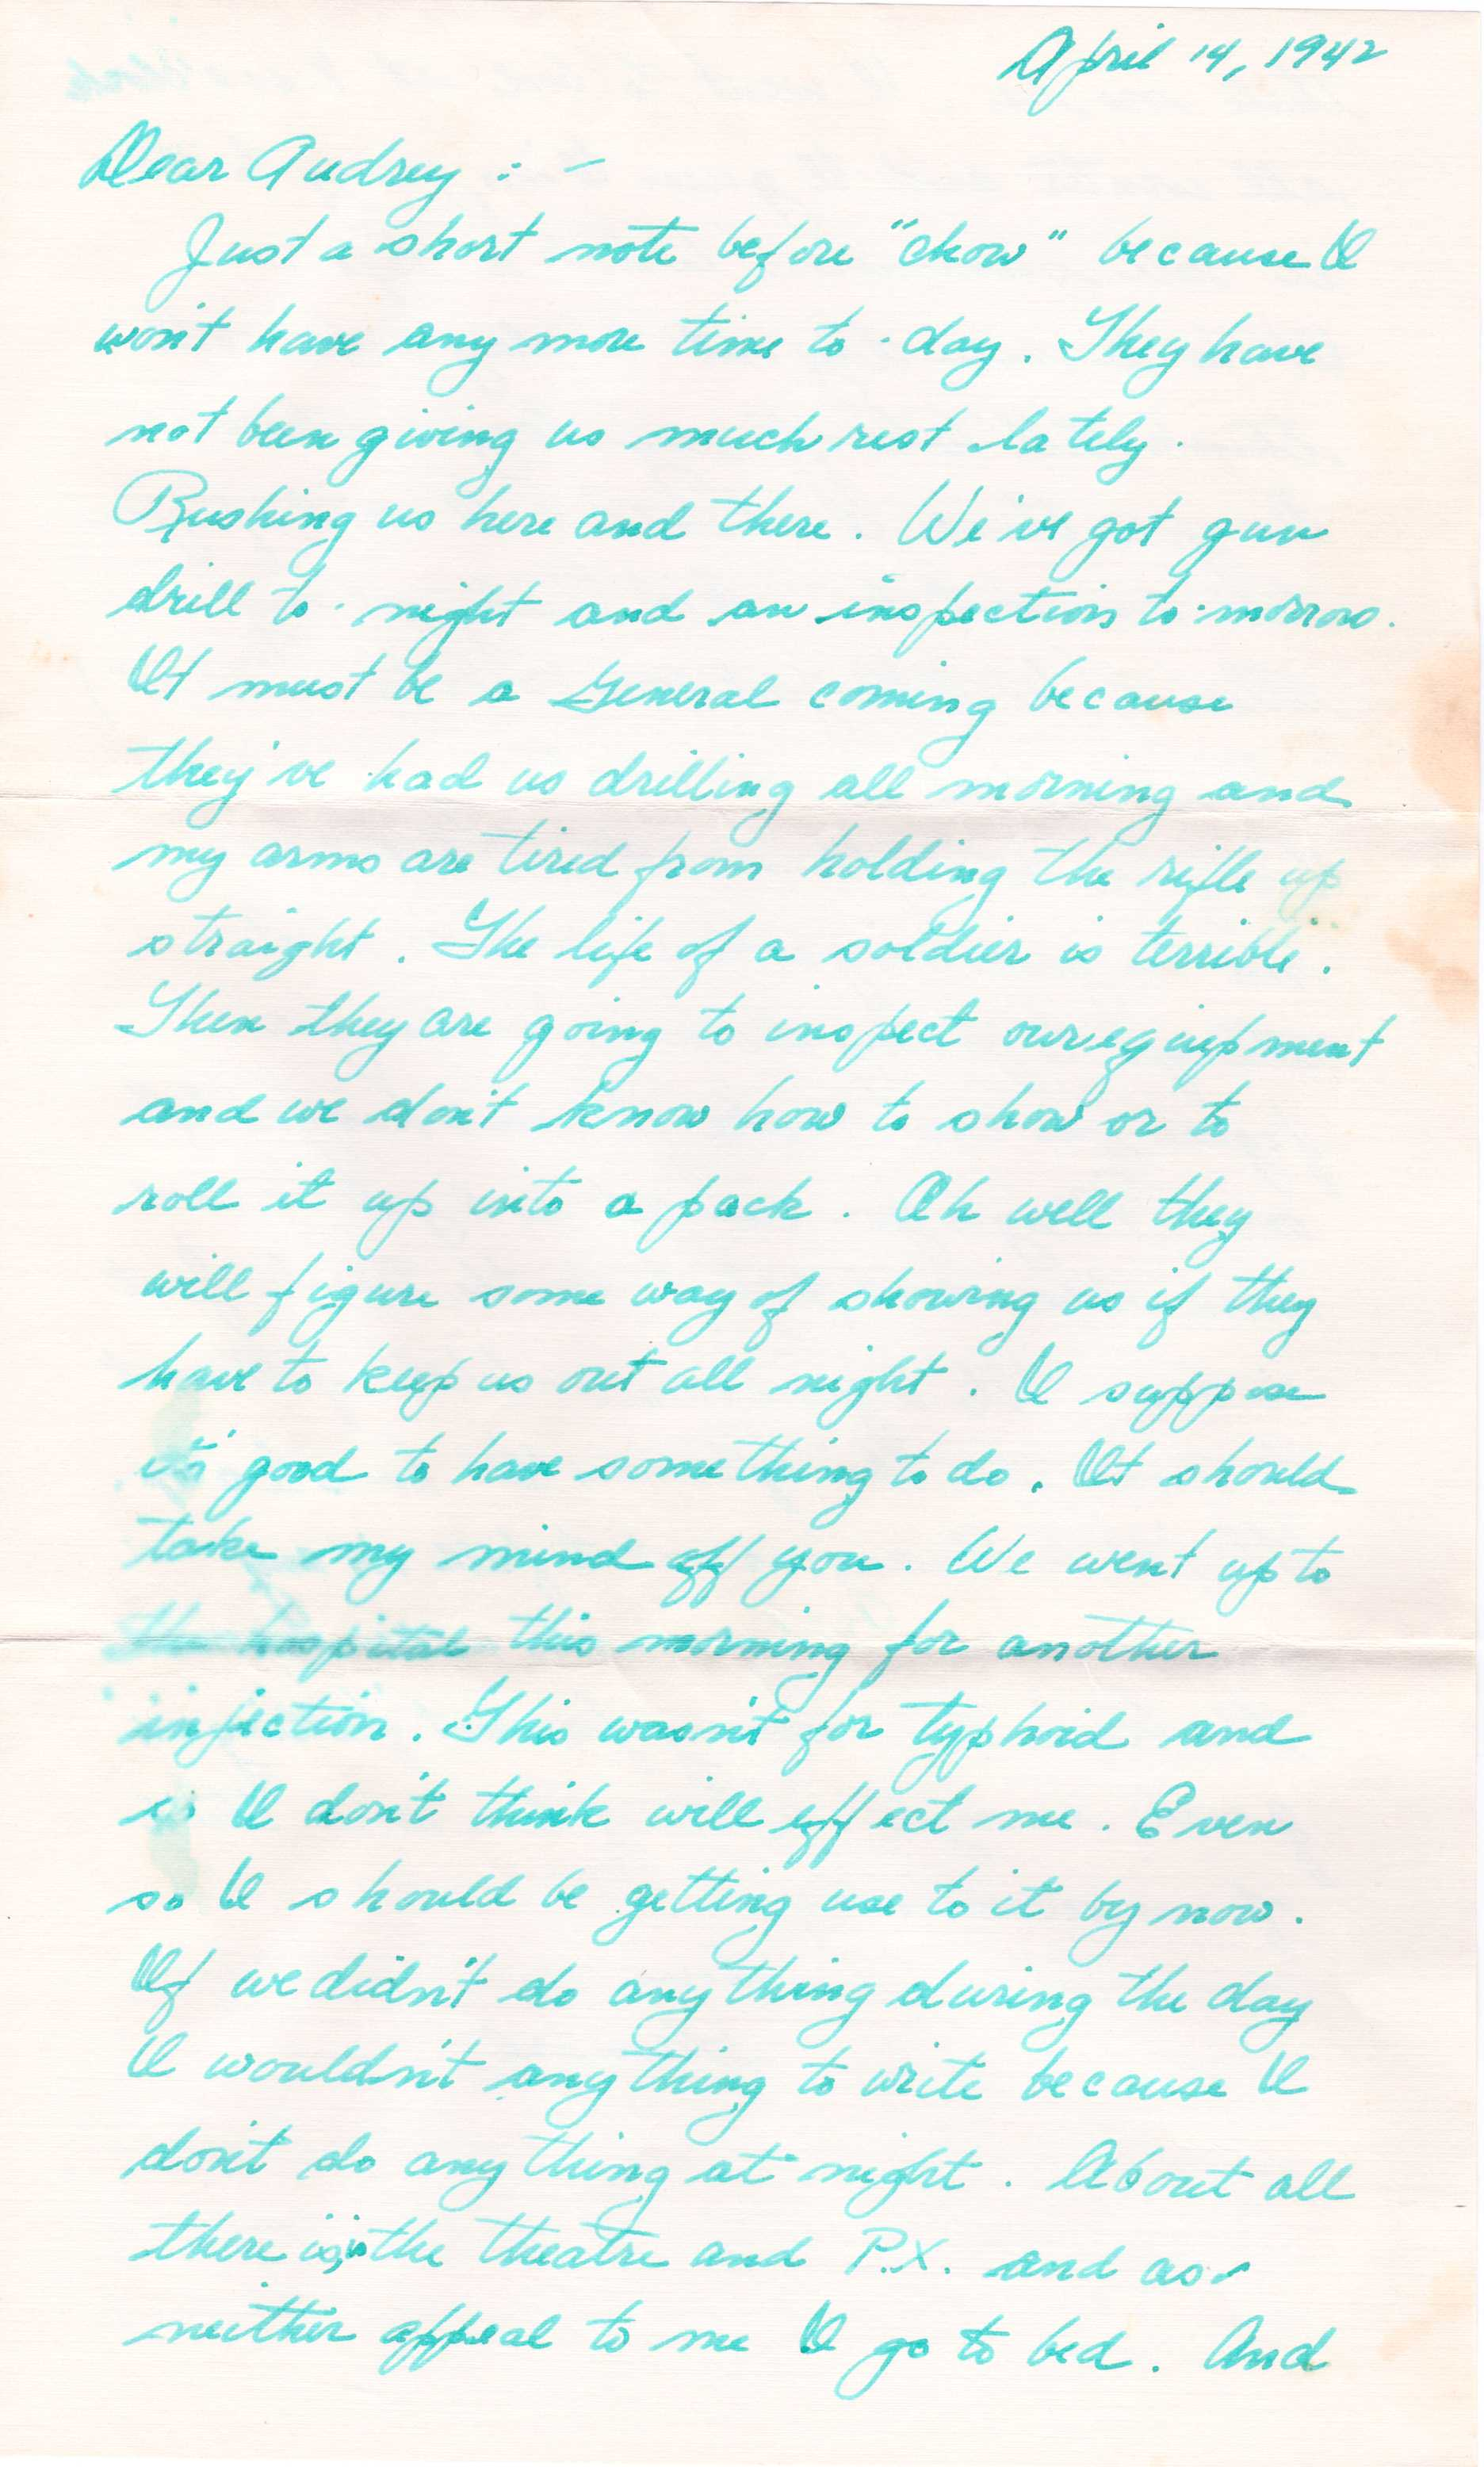 April 14, 1942
Dear Audrey : -
Just a short note before "chow" because I
won't have any more time to-day. They have
not been giving us much rest lately.
Rushing us here and there. We've got gun
drill to-night and an inspection to-morrow.
It must be a General coming because
they've had us drilling all morning and
my arms are tired from holding the rifle up
straight. The life of a soldier is terrible.
Then they are going to inspect our equipment
and we don't know how to show or to
roll it up into a pack. Oh well they
will figure some way of showing us if they
have to keep us out all night. I suppose
it's good to have something to do. It should
take my mind off you. We went up to
the hospital this morning for another
injection. This wasn't for typhoid and
so I don't think will effect me. Even
so I should be getting use to it by now.
If we didn't do anything during the day
I wouldn't anything to write because I
don't do anything at night. About all
there is, is the theatre and P.X. and as
neither appeal to me I go to bed. And